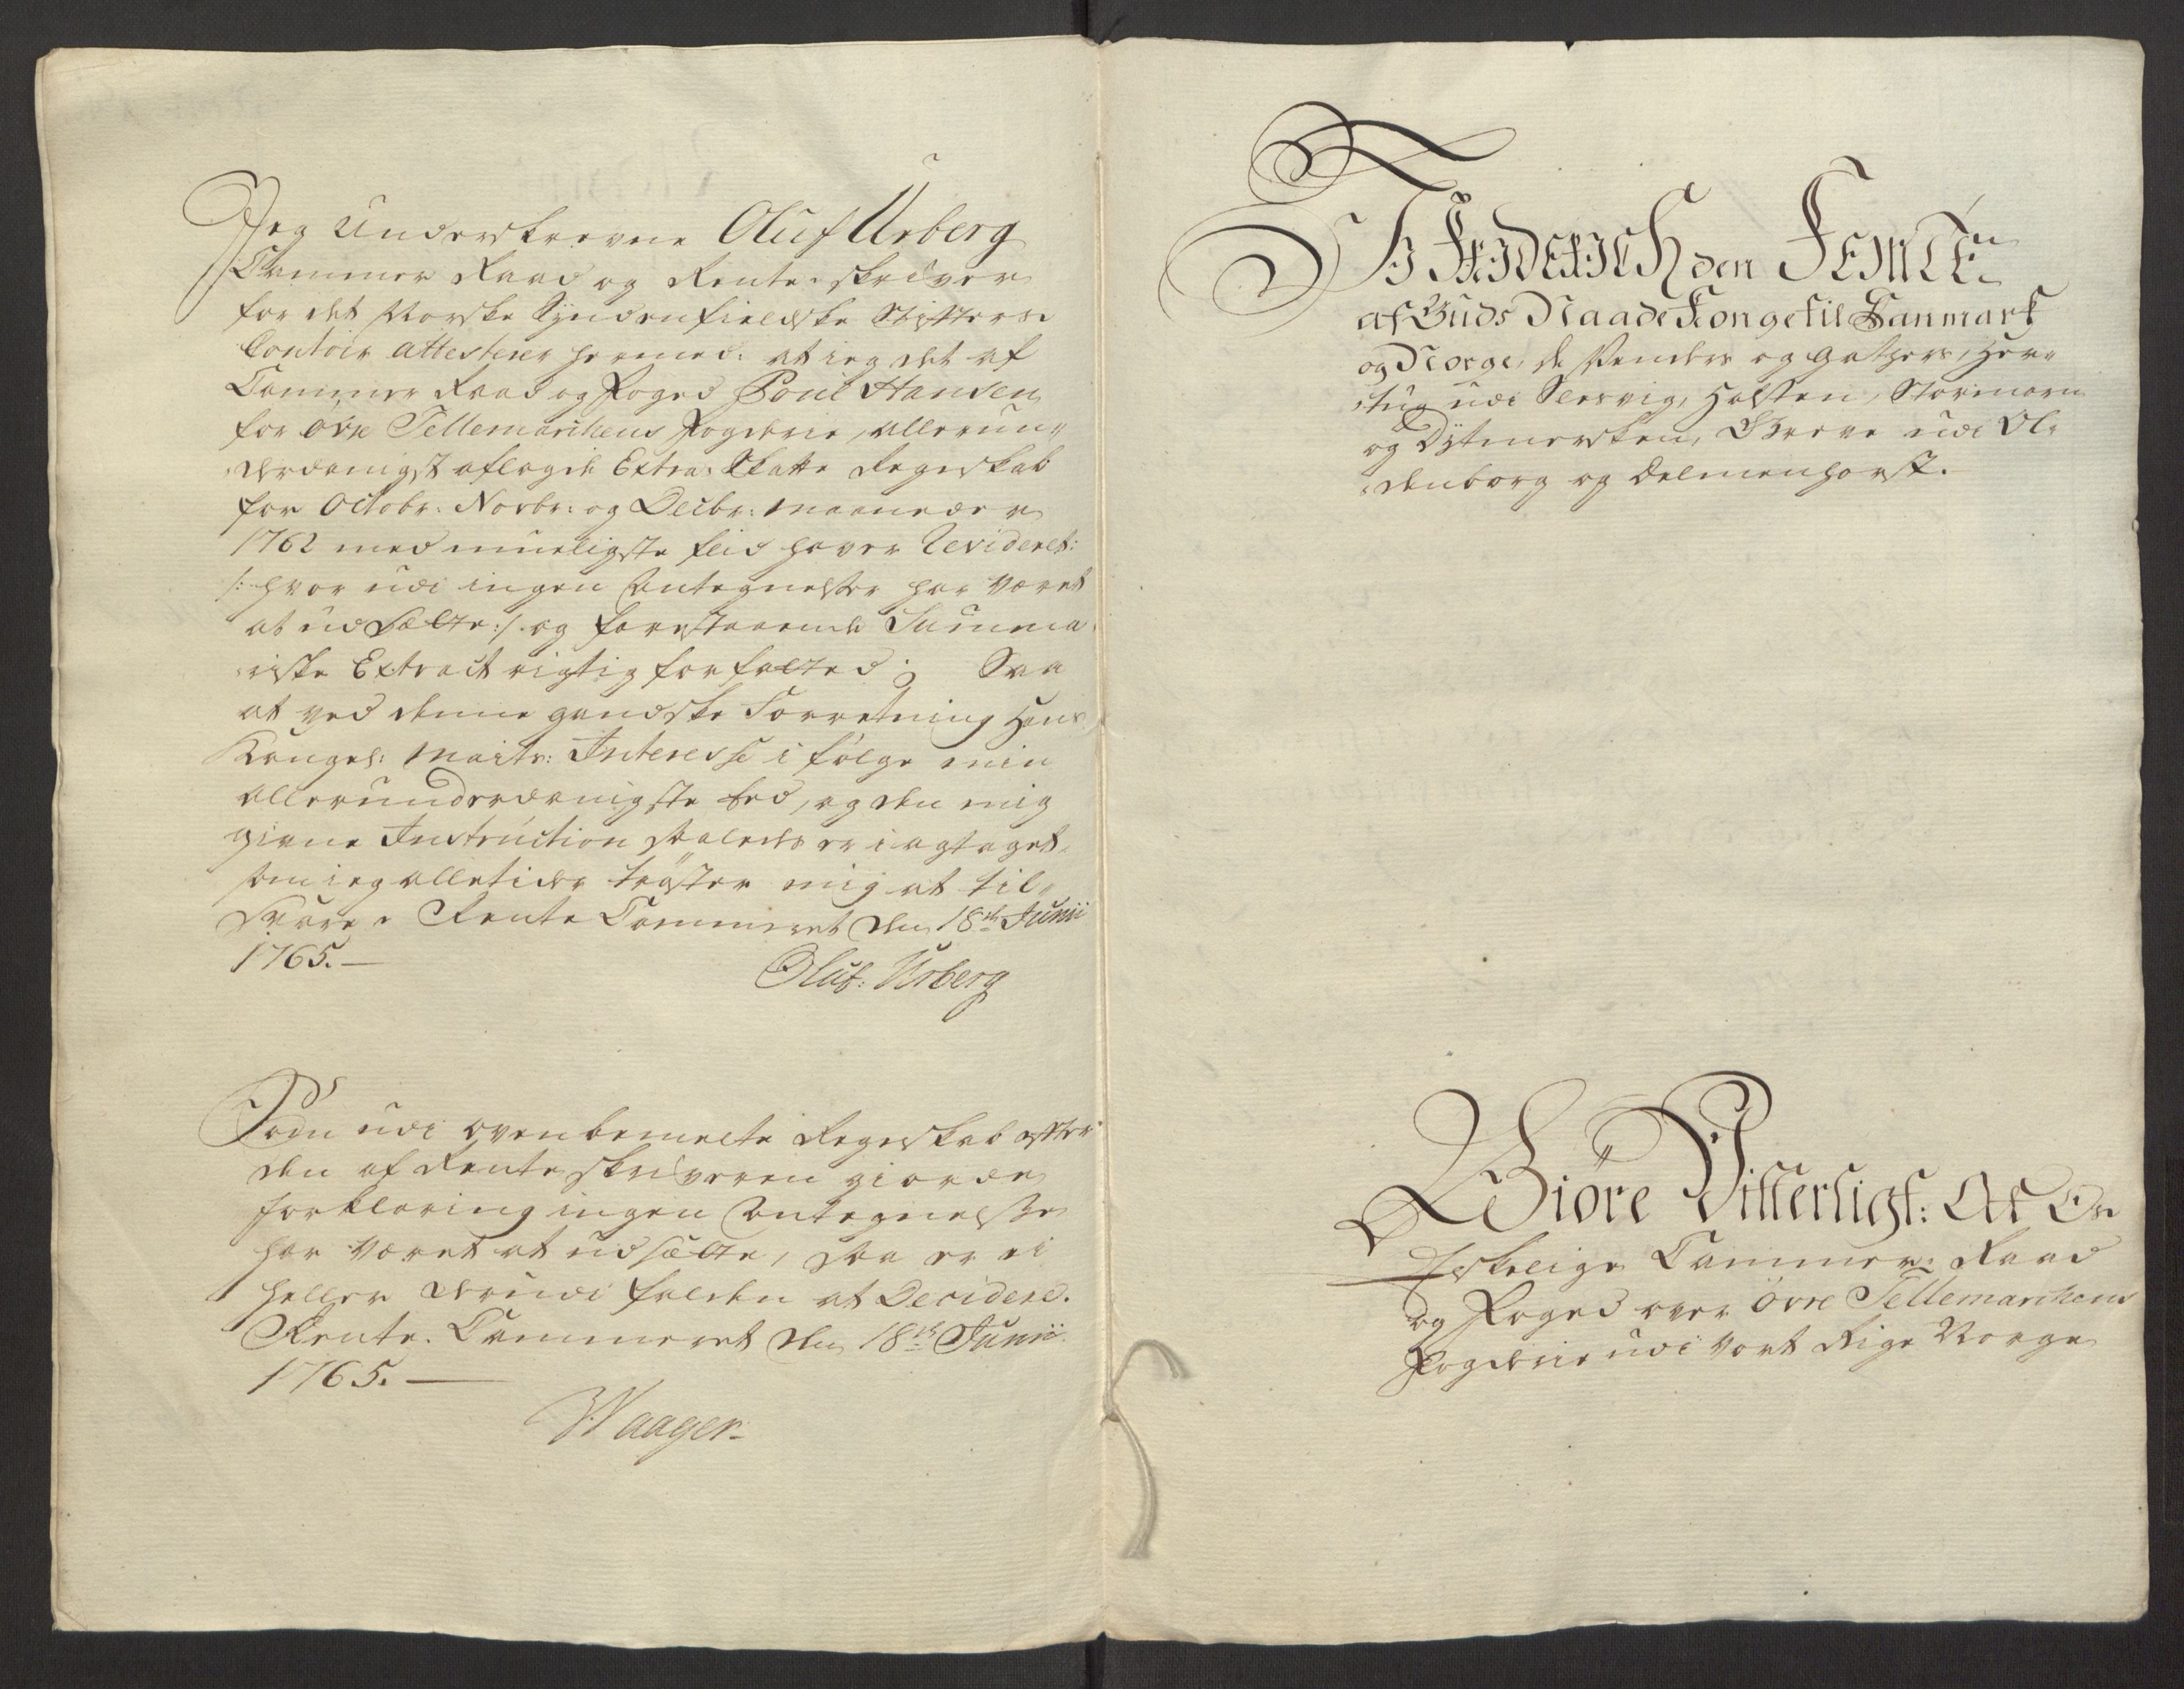 Jeg Underskrevne Oluf Urberg
Cammer Raad og Rente-skriver
for det Norske Synden fieldske Stifters
Contoir attesterer hermed: at ieg det af
Cammer Raad og Foged Poul Hansen
for Övre Tellemarchens Fogderie, allerun„
derdanigst aflagde Extra Skatte Regnskab
for Octobr: Novbr: og Decbr: Maaneder
1762 med mueligste flid haver Revideret:
/: hvor udi ingen Antegnelser har været
at udsætte :/ og forestaaende Summa„
riske Extract rigtig forfatted; Saa
at ved denne gandske Forretning Hans
Kongel: Maits: Interesse i følge min
allerunderdanigste Eed, og den mig
givne Instruction saaledes er iagtaget,
som ieg alletider trøster mig at til„
svare. Rente Cammeret den 18de Junii
1765.—
Oluf: Urberg
Som udi ovenbemelte Regnskab efter
den af Renteskriveren giorde
forklaring ingen Antegnelser
har været at udsætte, saa er ei
heller derudi falden at Decidere.
Rente-Cammeret den 18de Junii
1765.—
Waager.
Vi Friderich den Femte
af Guds Naade Konge til Danmark
og Norge, de Venders og Gothers, Her„
tug udi Slesvig, Holsten, Stormarn
og Dytmersken, Greve udi Ol„
denborg og Delmenhorst.
Giöre Vitterligt: At Os
Elskelige Cammer-Raad
og Foged over Övre Tellemarchens
Fogderie udi vort Rige Norge